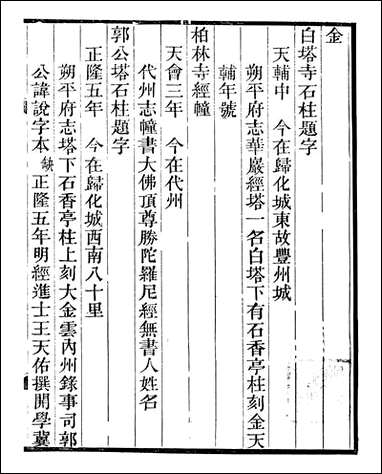 金
白塔寺石柱題字
天輔中　今在歸化城東故豐州城
朔平府志華嚴經塔一名白塔下有石香亭柱刻金天
輔年號
柏林寺經幢
天會三年　今在代州
代州志幢書大佛頂尊勝陀羅尼經無書人姓名
郭公塔石柱題字
正隆五年　今在歸化城西南八十里
朔平府志塔下石香亭柱上刻大金雲內州錄事司郭
公諱說字本缺正隆五年明經進士王天佑撰開學冀